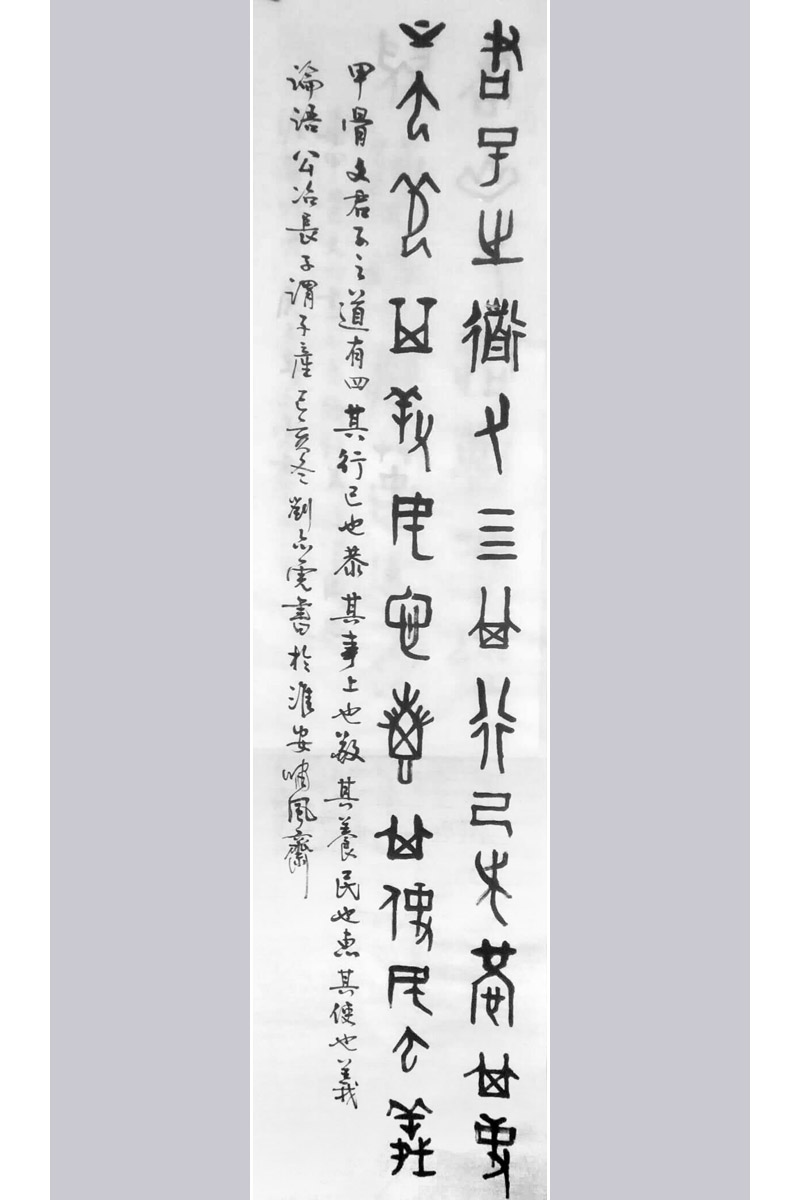 君子之道又四其行己也恭其事
上也敬其養民也惠其使民也義
甲骨文君子之道有四其行己也恭其事上也敬其養民也惠其使也義
論語公冶長子謂子產己亥冬劉書於淮安嘯風齋